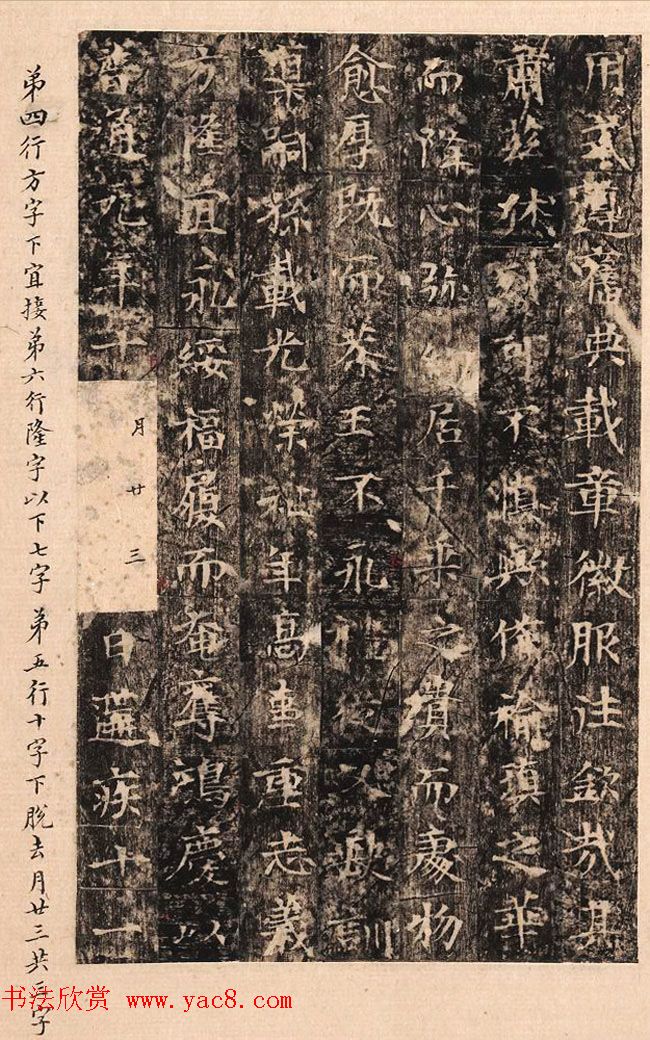 用式遵舊典載章徽服往欽哉其
肅茲休烈可不慎歟俻褕瑱之華
而降心弥約居千乘之貴而處物
愈厚既而恭王不永又訓
藐嗣孫載光榮祉年高事重志義
方隆宜永綏福履而奄奪鴻慶以
普通元年十月廿三日遘疾十一
弟四行方字下宜接弟六行隆字以下七字弟五行十字下脫去月廿三共三字
书法欣赏 www.yac8.com